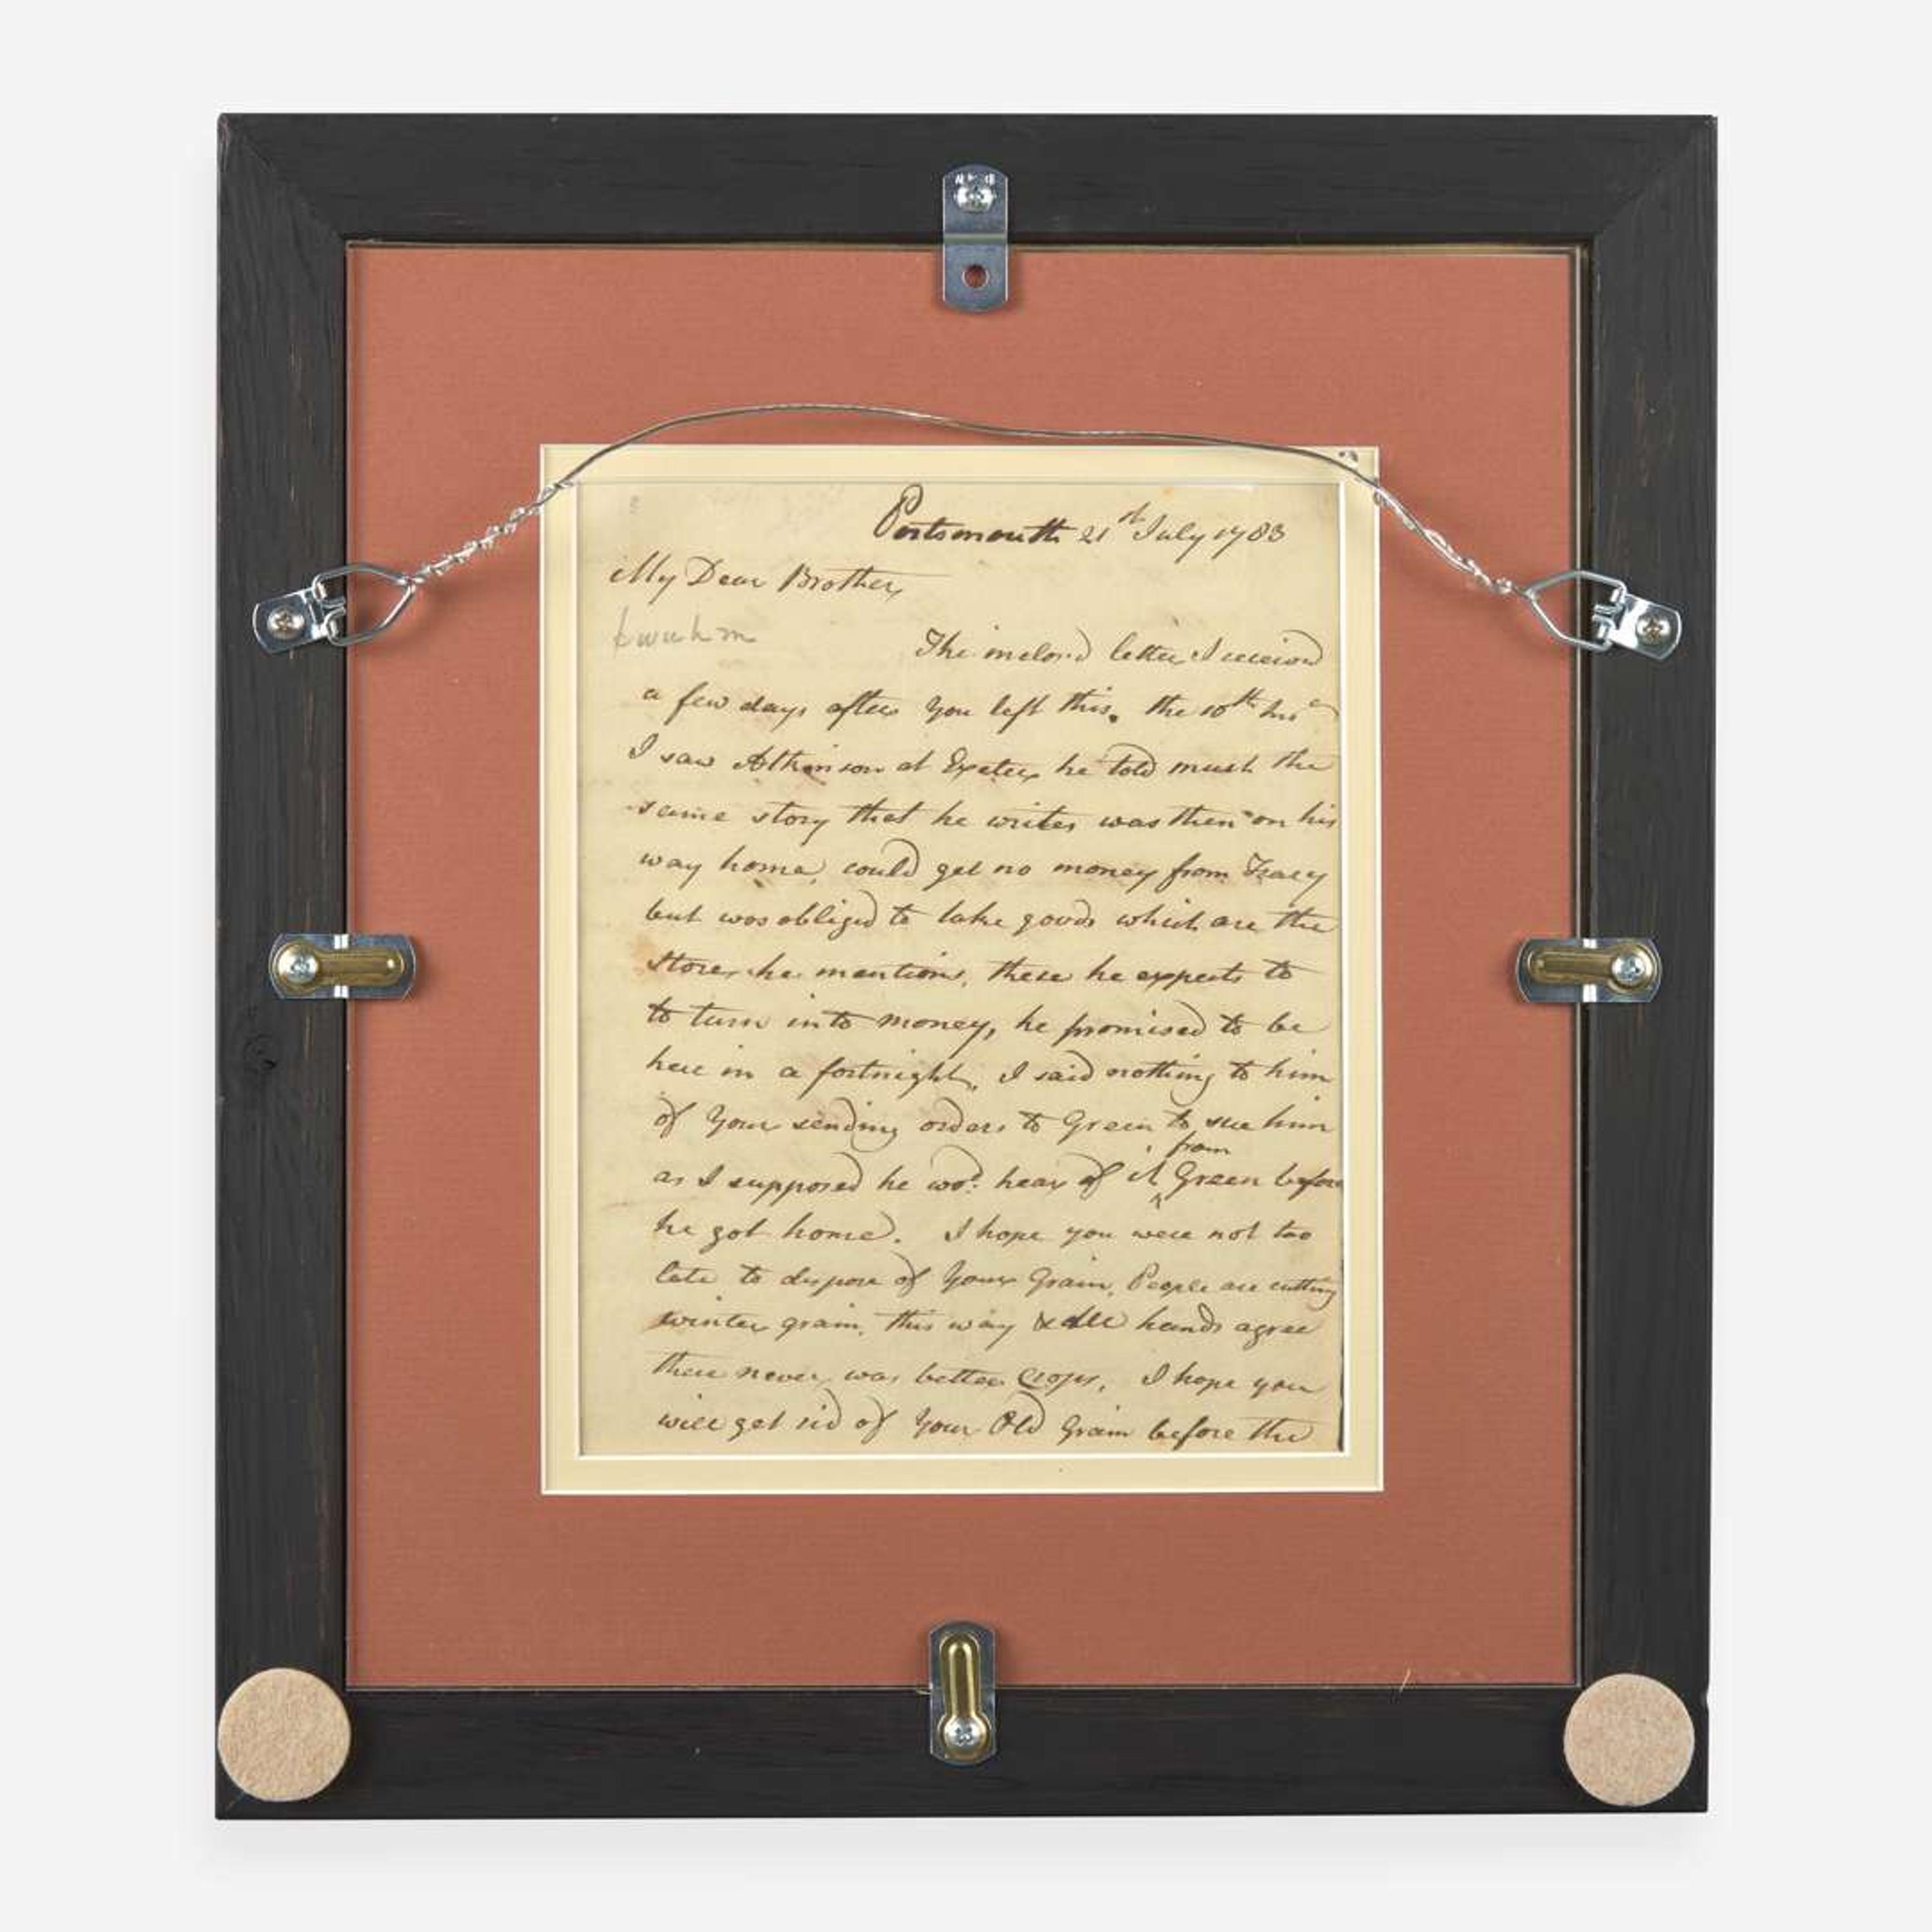 Portsmouth 21st July 1783
My Dear Brother,
The inclosd letter I receivd
a few days after you left this. the 10th Inst
I saw Atkinson at Exeter he told much the
same story that he writes was then on his
way home, could get no money from Tracy
but was obliged to take goods which are the
stores he mentions, these he expects to
to turn into money, he promised to be
here in a fortnight, I said nothing to him
of Your sending orders to Green to sue him
from
as I supposed he wod. hear of it ^ Green before
he got home. I hope you were not too
late to dispose of Your Grain, People are cutting
winter grain, this way & all hands agree
there never was better Crops, I hope you
will get rid of Your Old Grain before the